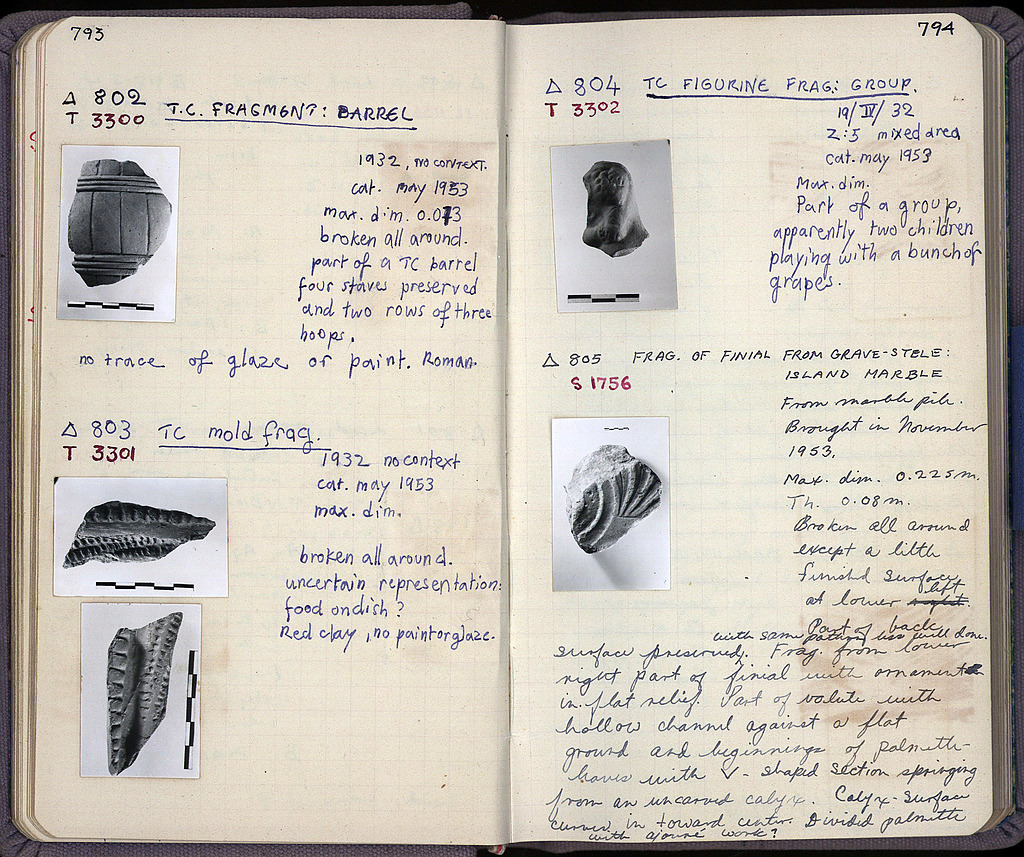 793
Δ 802
T 3300
T.C. FRAGMENT: BARREL
1932, no context.
cat. may 1953
max. dim. 0.073
broken all around.
part of a TC barrel
four staves preserved
and two rows of three
hoops.
no trace of glaze or paint. Roman.
Δ 803 TC mold frag.
T 3301
1932 no context
cat. may 1953
max. dim.
broken all around.
uncertain representation:
food on dish?
Red clay, no paint or glaze.
794
Δ 804 TC FIGURINE FRAG: GROUP.
T 3302
19/IV/32
Z:5 mixed area
cat. may 1953
Max. dim.
Part of a group,
apparently two children
playing with a bunch of
grapes.
Δ 805 FRAG. OF FINIAL FROM GRAVE-STELE:
S 1756
ISLAND MARBLE
From marble pile.
Brought in November
1953.
Max. dim. 0.225m.
Th. 0.08m.
Broken all around
except a little
finished surface
at lower right. left
Part of back
with same pattern less well done.
surface preserved. Frag. from lower
right part of finial with ornament
in flat relief. Part of volute with
hollow channel against a flat
ground and beginnings of palmette-
leaves with V-shaped section springing
from an uncarved calyx. Calyx-surface
curves in toward center. Divided palmette
with ajouré work?